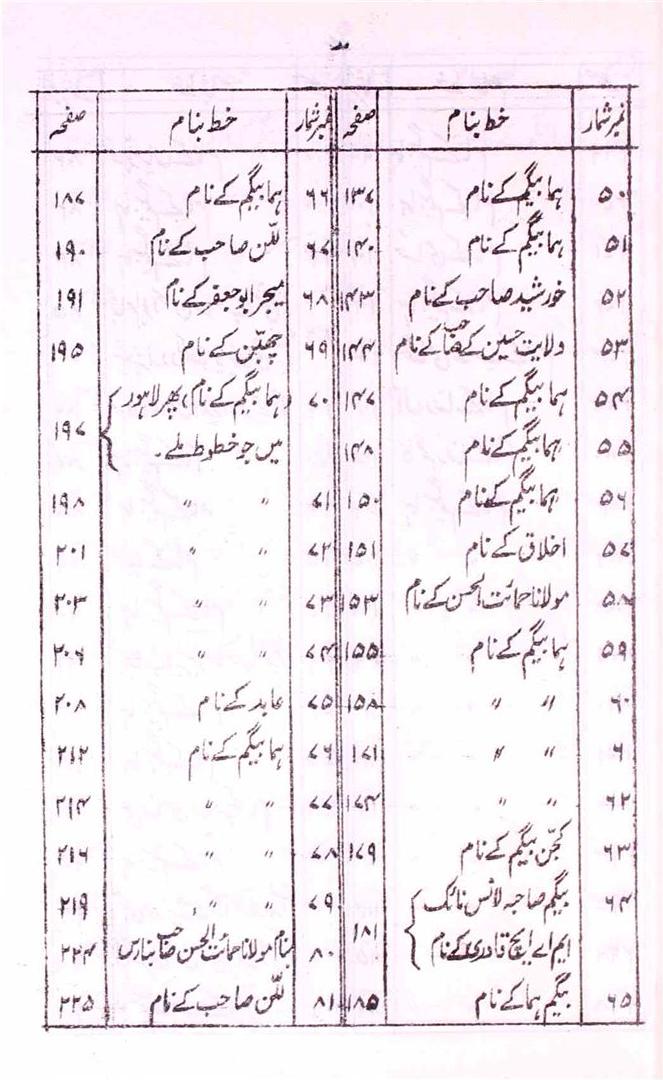 نمبر شمار خط بنام صفحہ نمبر شمار خط بنام صفحہ
۵۰ ہما بیگم کے نام ۱۳۷ ۶۶ ہما بیگم کے نام ۱۸۷
۵۱ ہما بیگم کے نام ۱۴۰ ۶۷ للّن صاحب کے نام ۱۹۰
۵۲ خورشید صاحب کے نام ۱۴۳ ۶۸ میجر ابو جعفر کے نام ۱۹۱
۵۳ ولایت حسین کے صاحب کے نام ۱۴۴ ۶۹ چھبّن کے نام ۱۹۵
۵۴ ہما بیگم کے نام ۱۴۷ ۷۰ (ہما بیگم کے نام) پھر لاہور
۵۵ ہما بیگم کے نام ۱۴۸ میں جو خطوط ملے۔ ۱۹۷
۵۶ ہما بیگم کے نام ۱۵۰ ۷۱ " " ۱۹۸
۵۷ اخلاق کے نام ۱۵۱ ۷۲ " " ۲۰۱
۵۸ مولانا حمائت الحسن کے نام ۱۵۳ ۷۳ " " ۲۰۳
۵۹ ہما بیگم کے نام ۱۵۵ ۷۴ " " ۲۰۶
۶۰ " " ۱۵۸ ۷۵ عابد کے نام ۲۰۸
۶ " " ۱۷۱ ۷۶ ہما بیگم کے نام ۲۱۲
۶۲ " " ۱۷۴ ۷۷ " " ۲۱۴
۶۳ کجّن بیگم کے نام ۱۷۹ ۷۸ " " ۲۱۶
۶۴ بیگم صاحبہ لانس نائک ۷۹ " " ۲۱۹
ایم اے ایچ قادری کے نام ۱۸۱ ۸۰ بنام مولانا حمائت الحسن صاحب بنارس ۲۲۴
۶۵ بیگم ہما کے نام ۱۸۵ ۸۱ للّن صاحب کے نام ۲۲۵